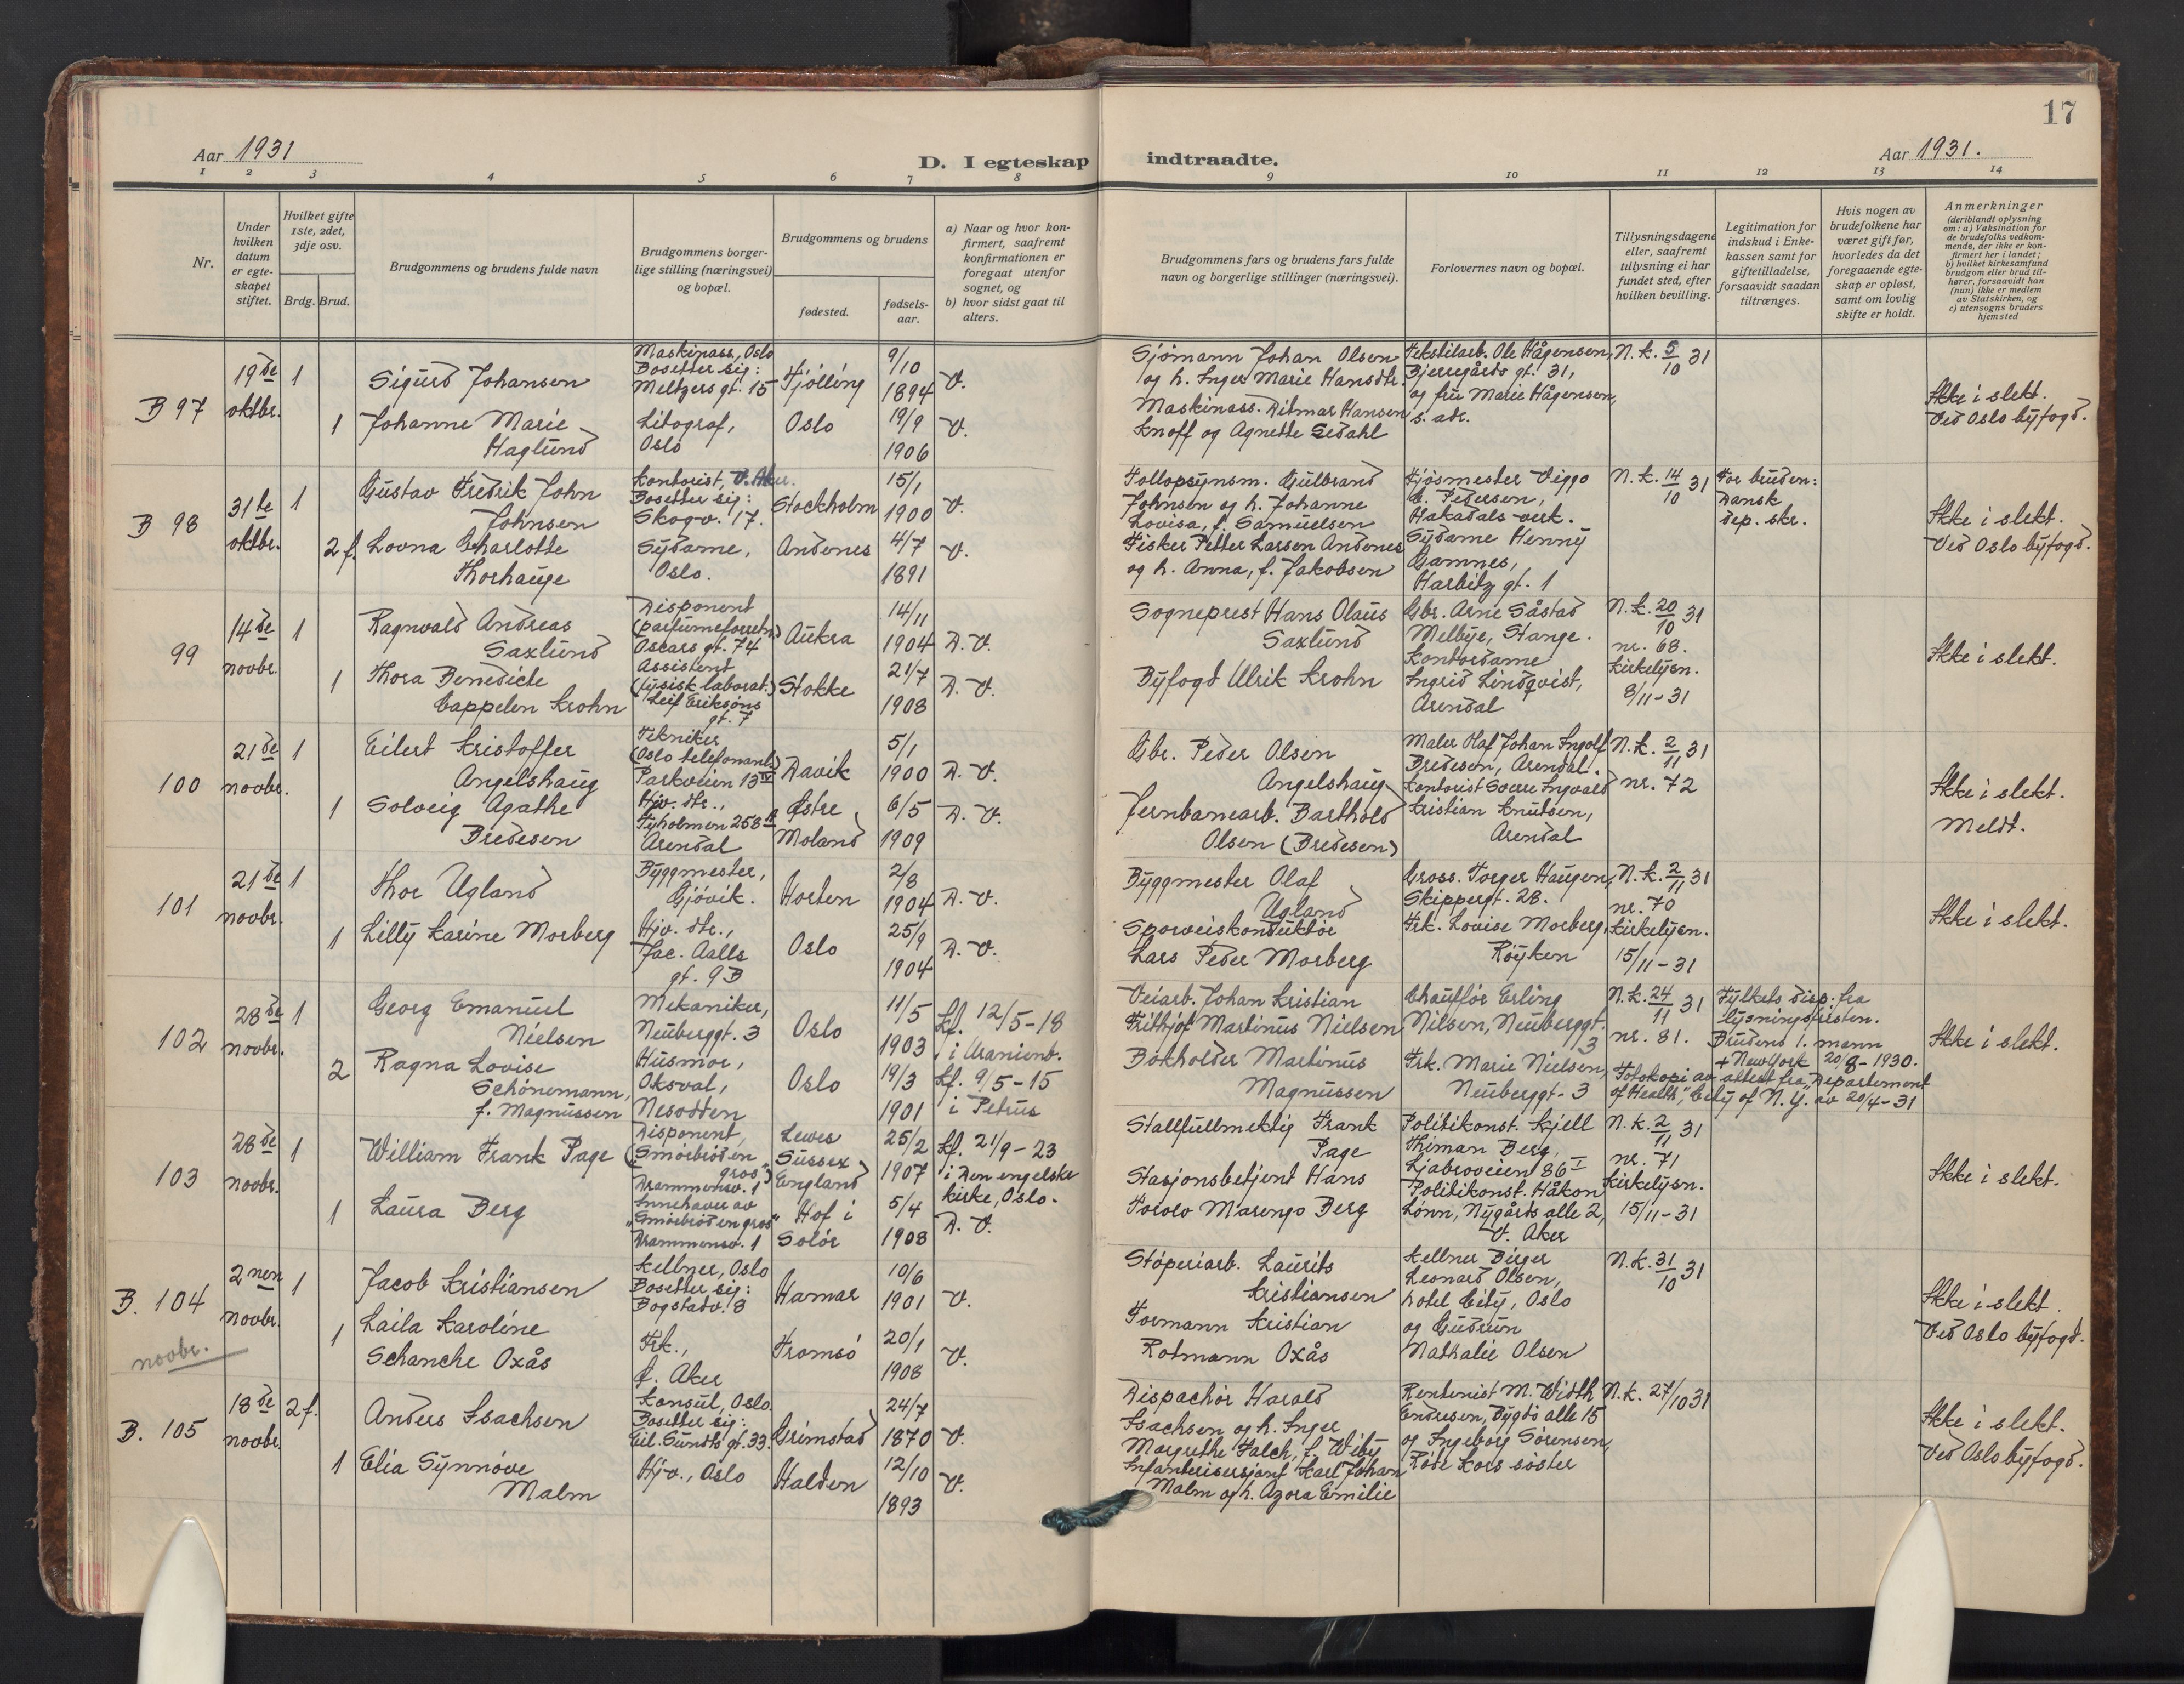 17
Aar 1931
D. I egteskap indtraadte.
Aar 1931.
1 2 3 4 5 6 7 8 9 10 11 12 13 14
Nr.
Under hvilken datum er egte-skapet stiftet.
Hvilket gifte 1ste, 2det, 3dje osv.
Brdg. Brud.
Brudgommens og brudens fulde navn
Brudgommens borger-lige stilling (næringsvei) og bopæl.
Brudgommens og brudens
fødested.
fødsels-aar.
a) Naar og hvor kon-firmert, saafremt konfirmationen er foregaat utenfor sognet, og
b) hvor sidst gaat til alters.
Brudgommens fars og brudens fars fulde navn og borgerlige stillinger (næringsvei).
Forlovernes navn og bopæl.
Tillysningsdagene eller, saafremt tillysning ei har fundet sted, efter hvilken bevilling.
Legitimation for indskud i Enke-kassen samt for giftetilladelse, forsaavidt saadan tiltrænges.
Hvis nogen av brudefolkene har været gift før, hvorledes da det foregaaende egte-skap er opløst, samt om lovlig skifte er holdt.
Anmerkninger
(deriblandt oplysning om: a) Vaksination for de brudefolks vedkom-mende, der ikke er kon-firmert her i landet;
b) hvilket kirkesamfund brudgom eller brud til-hører, forsaavidt han (hun) ikke er medlem av Statskirken, og
c) utensogns bruders hjemsted
B 97
19de oktbr.
1
Sigurd Johansen
Maskinass., Oslo
Bosetter sig:
Meltzers gt. 15
Tjølling
9/10 1894
V.
Sjømann Johan Olsen
og h. Inger Marie Hansdtr.
Tekstilarb. Ole Hågensen,
Bjerregårds gt. 31,
og fru Marie Hågensen,
s. adr.
N.k. 5/10 31
Ikke i slekt.
Ved Oslo byfogd.
1
Johanne Marie
Haglund
Litograf,
Oslo
Oslo
19/9 1906
V.
Maskinass. Ditmar Hansen
Knoff og Agnette Sedahl
B 98
31te oktbr.
1
Gustav Fredrik John
Johnsen
Kontorist, V. Aker.
Bosetter sig:
Skogv. 17.
Stockholm
15/1 1900
V.
Tollopsynsm. Gulbrand
Johnsen og h. Johanne
Lovisa, f. Samuelsen
Fjøsmester Viggo
C. Pedersen,
Hakadals verk.
N.k. 14/10 31
For bruden:
Dansk
dep. skr.
Ikke i slekt.
Ved Oslo byfogd.
2 f.
Lovna Charlotte
Thorhauge
Sydame,
Oslo.
Andenes
4/7 1891
V.
Fisker Petter Larsen Andenes
og h. Anna, f. Jakobsen
Sydame Henny
Gamnes,
Harbitz gt. 1
99
14de novbr.
1
Ragnvald Andreas
Saxlund
Disponent
(parfumeforretn.)
Oscars gt. 74
Aukra
14/11 1904
D. V.
Sogneprest Hans Olaus
Saxlund
Gbr. Arne Såstad
Melbye, Stange.
N.k. 20/10 31
nr. 68.
Kirkelysn.
8/11-31
Ikke i slekt.
1
Thora Benedicte
Cappelen Krohn
Assistent
(fysisk laborat.)
Leif Eriksøns
gt. 7
Stokke
21/7 1908
D. V.
Byfogd Ulrik Krohn
Kontordame
Ingrid Lindqvist,
Arendal
100
21de novbr.
1
Eilert Kristoffer
Angelshaug
Tekniker
(Oslo telefonanl.)
Parkveien 13 IV
Davik
5/1 1900
D. V.
Gbr. Peder Olsen
Angelshaug
Maler Olaf Johan Ingolf
Bredesen, Arendal.
N.k. 2/11 31
nr. 72
Ikke i slekt.
Meldt.
1
Solveig Agathe
Bredesen
Hjv. dtr.,
Tyholmen 258 B
Arendal
Østre
Moland
6/5 1909
D. V.
Jernbanearb. Barthold
Olsen (Bredesen)
Kontorist Sverre Ingvald
Kristian Knutsen,
Arendal
101
21de novbr.
1
Thor Ugland
Byggmester,
Gjøvik.
Horten
2/8 1904
D. V.
Byggmester Olaf
Ugland
Gross. Torger Haugen,
Skippergt. 28.
N.k. 2/11 31
nr. 70
Kirkelysn.
15/11-31
Ikke i slekt.
1
Lilly Karine Morberg
Hjv. dtr.,
Jac. Aalls
gt. 9 B
Oslo
25/9 1904
D. V.
Sporveiskonduktør
Lars Peder Morberg
Frk. Lovise Morberg,
Røyken
102
28de novbr.
1
Georg Emanuel
Nielsen
Mekaniker,
Neuberggt. 3
Oslo
11/5 1903
Kf. 12/5-18
i Uranienb.
Veiarb. Johan Kristian
Frithjof Martinus Nielsen
Chauffør Erling
Nilsen, Neuberggt.
3
N.k. 24/11 31
nr. 81.
Fylkets disp. fra
lysningsfristen.
Brudens 1. mann
+ New York 20/8-1930.
Fotokopi av attest fra "Departement
of Health", City of N.Y. av 20/4-31
Ikke i slekt.
2
Ragna Lovise
Schønemann,
f. Magnussen
Husmor,
Oksval,
Nesodden
Oslo
19/3 1901
Kf. 9/5-15
i Petrus
Bokholder Martinus
Magnussen
Frk. Marie Nielsen,
Neuberggt. 3
103
28de novbr.
1
William Frank Page
Disponent,
("Smørbrød en
gros")
Drammensv. 1
Lewes
Sussex
England
25/2 1907
Kf. 21/9-23
i Den engelske
kirke, Oslo.
Stallfullmektig Frank
Page
Politikonst. Kjell
Thiman Berg,
Ljabroveien 86 I
N.k. 2/11 31
nr. 71
Kirkelysn.
15/11-31
Ikke i slekt.
1
Laura Berg
Innehaver av
"Smørbrød en gros"
Drammensv. 1
Hof i
Solør
5/4 1908
D. V.
Stasjonsbetjent Hans
Torolv Marenpo Berg
Politikonst. Håkon
Lønn, Nygårds alle 2,
V. Aker
B. 104
novbr.
2nen novbr.
1
Jacob Kristiansen
Kellner, Oslo
Bosetter sig:
Bogstadv. 8
Hamar
10/6 1901
V.
Støperiarb. Laurits
Kristiansen
Kellner Birger
Leonard Olsen,
hotel City, Oslo
og Gudrun
Nathalie Olsen
N.k. 31/10 31
Ikke i slekt.
Ved Oslo byfogd.
1
Laila Karoline
Schanche Oxås
Frk.,
Ø. Aker
Tromsø
20/1 1908
V.
Formann Kristian
Rotmann Oxås
B. 105
18de novbr.
2 f.
Anders Isachsen
Konsul, Oslo.
Bosetter sig:
Eil. Sundts gt. 33.
Grimstad
24/7 1870
V.
Dispachør Harald
Isachsen og h. Inger
Margrethe Falch, f. Wiby
Rentenist M. Width
Endresen, Bygdø alle 15
og Ingeborg Sørensen,
Røde Kors søster
N.k. 27/10 31
Ikke i slekt.
Ved Oslo byfogd.
1
Elia Synnøve
Malm
Hjv., Oslo
Halden
12/10 1893
V.
Infanterisersjant Karl Johan
Malm og h. Azora Emilie